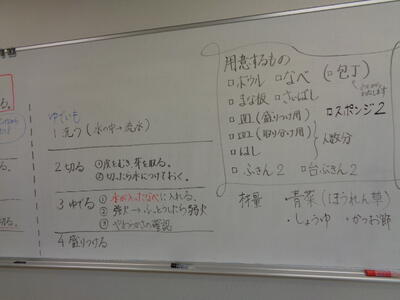 る。
ゆでいも
1 洗う（水の中→流水）
2 切る ①皮をむき、芽を取る。
②切ったら水につけておく。
3 ゆでる ①水が入ったなべに入れる。
②強火→ふっとうしたら弱火
③やわらかさの確認
4 盛りつける
る。
用意するもの
□ボウル □なべ （□包丁）
□まな板 □さいばし
□皿（盛りつけ用） □スポンジ2
□皿（取り分け用） 人数分
□はし
□ふきん2 □台ふきん2
材量 ・青菜（ほうれん草）
・しょうゆ ・かつお節